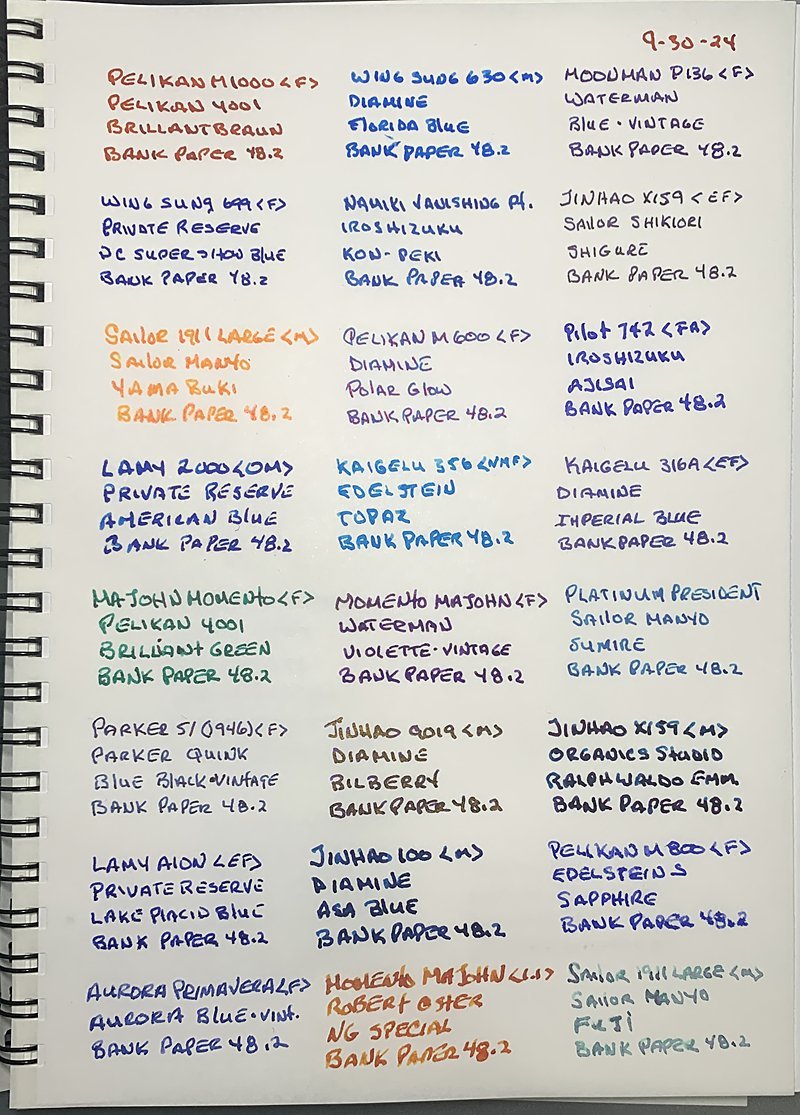 9-30-24
PELIKAN M1000 <F>
PELIKAN 4001
BRILLANTBRAUN
BANK PAPER 48.2
WING SUNG 630 <M>
DIAMINE
FLORIDA BLUE
BANK PAPER 48.2
MOONMAN P136 <F>
WATERMAN
BLUE·VINTAGE
BANK PAPER 48.2
WING SUNG 699 <F>
PRIVATE RESERVE
DC SUPER SHOW BLUE
BANK PAPER 48.2
NAMIKI VANISHING Pt.
IROSHIZUKU
KON-PEKI
BANK PAPER 48.2
JINHAO X159 <EF>
SAILOR SHIKIORI
SHIGURE
BANK PAPER 48.2
SAILOR 1911 LARGE <M>
SAILOR MANYO
YAMA BUKI
BANK PAPER 48.2
PELIKAN M600 <F>
DIAMINE
POLAR GLOW
BANK PAPER 48.2
PILOT 742 <FA>
IROSHIZUKU
AJISAI
BANK PAPER 48.2
LAMY 2000 <OM>
PRIVATE RESERVE
AMERICAN BLUE
BANK PAPER 48.2
KAIGELU 356 <NMF>
EDELSTEIN
TOPAZ
BANK PAPER 48.2
KAIGELU 316A <EF>
DIAMINE
IMPERIAL BLUE
BANK PAPER 48.2
MAJOHN MOMENTO <F>
PELIKAN 4001
BRILLIANT GREEN
BANK PAPER 48.2
MOMENTO MAJOHN <F>
WATERMAN
VIOLETTE·VINTAGE
BANK PAPER 48.2
PLATINUM PRESIDENT
SAILOR MANYO
SUMIRE
BANK PAPER 48.2
PARKER 51 (1946) <F>
PARKER QUINK
BLUE BLACK·VINTAGE
BANK PAPER 48.2
JINHAO 9019 <M>
DIAMINE
BILBERRY
BANK PAPER 48.2
JINHAO X159 <M>
ORGANICS STUDIO
RALPH WALDO EMM.
BANK PAPER 48.2
LAMY AION <EF>
PRIVATE RESERVE
LAKE PLACID BLUE
BANK PAPER 48.2
JINHAO 100 <M>
DIAMINE
ASA BLUE
BANK PAPER 48.2
PELIKAN M800 <F>
EDELSTEIN S
SAPPHIRE
BANK PAPER 48.2
AURORA PRIMAVERA <F>
AURORA BLUE·VINT.
BANK PAPER 48.2
MOMENTO MAJOHN <1.1>
ROBERT OSTER
NG SPECIAL
BANK PAPER 48.2
SAILOR 1911 LARGE <M>
SAILOR MANYO
FUJI
BANK PAPER 48.2